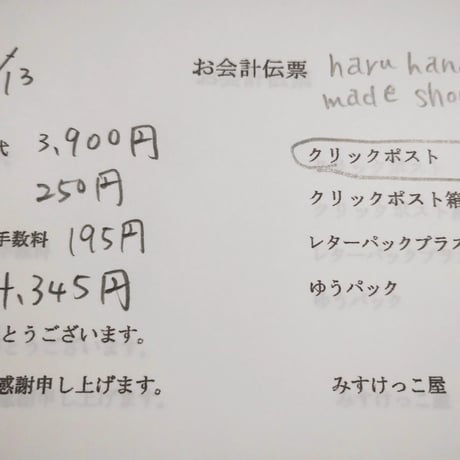 /13
お会計伝票 haru han
made sho
3,900円
クリックポスト
250円
クリックポスト箱
手数料 195円
レターパックプラス
4,345円
ゆうパック
とうございます。
感謝申し上げます。
みすけっこ屋